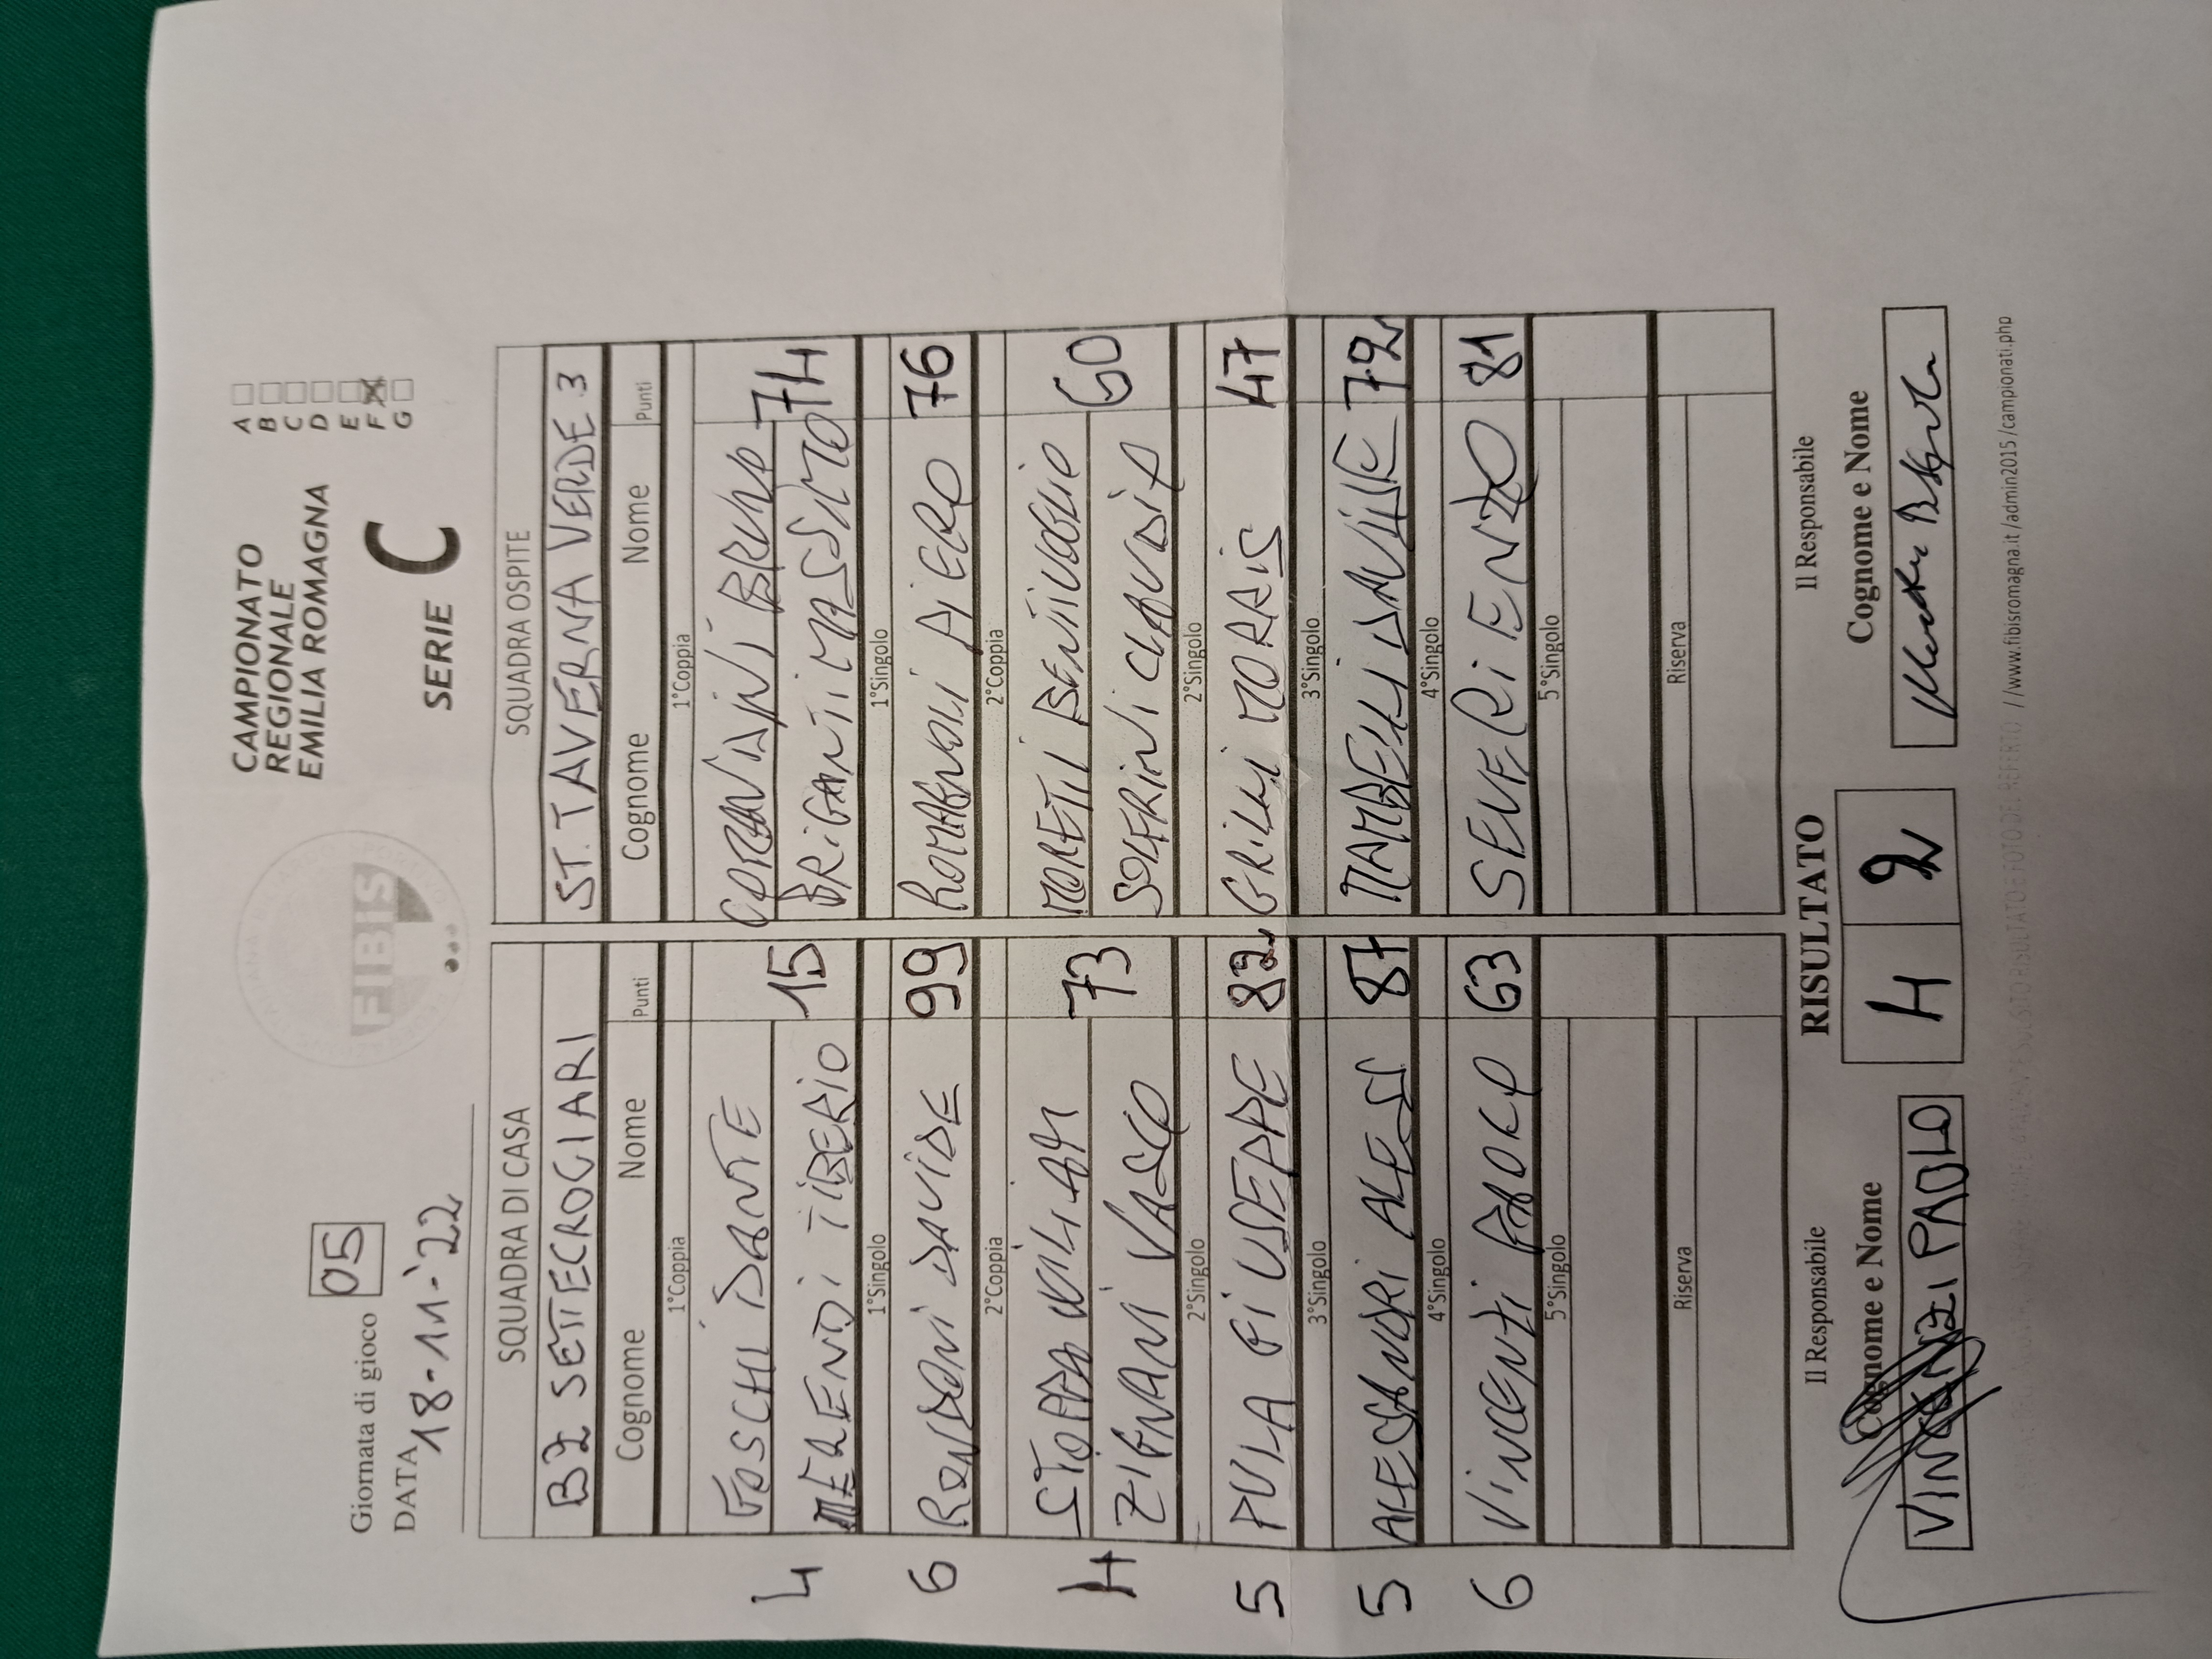 Giornata di gioco 05
DATA 18-11-'22
FIBIS
CAMPIONATO
REGIONALE
EMILIA ROMAGNA
SERIE C
A
B
C
D
E
F X
G
SQUADRA DI CASA SQUADRA OSPITE
BZ SETTECROCIARI ST. TAVERNA VERDE 3
Cognome Nome Punti Cognome Nome Punti
1°Coppia 1°Coppia
FOSCHI DANTE BRUNO
4 MERENDI TIBERIO 15 BRIGANTI MASSIMO 74
1°Singolo 1°Singolo
6 RONDONI DAVIDE 99 ROMAGNOLI PIERO 76
2°Coppia 2°Coppia
STOPPA WILIAM MORETTI BENTIVOGLIO
4 ZIGNANI VASCO 73 SOLFRINI CLAUDIA 60
2°Singolo 2°Singolo
5 PULA GIUSEPPE 82 GRILLI MORAIS 47
3°Singolo 3°Singolo
5 ALESSANDRI ALESS 87 MAMBELLI DAVIDE 72
4°Singolo 4°Singolo
6 VINCENZI PAOLO 63 SEVERI ENZO 81
5°Singolo 5°Singolo
Riserva Riserva
Il Responsabile RISULTATO Il Responsabile
Cognome e Nome 4 2 Cognome e Nome
VINCENZI PAOLO
//www.fibisromagna.it/admin2015/campionati.php